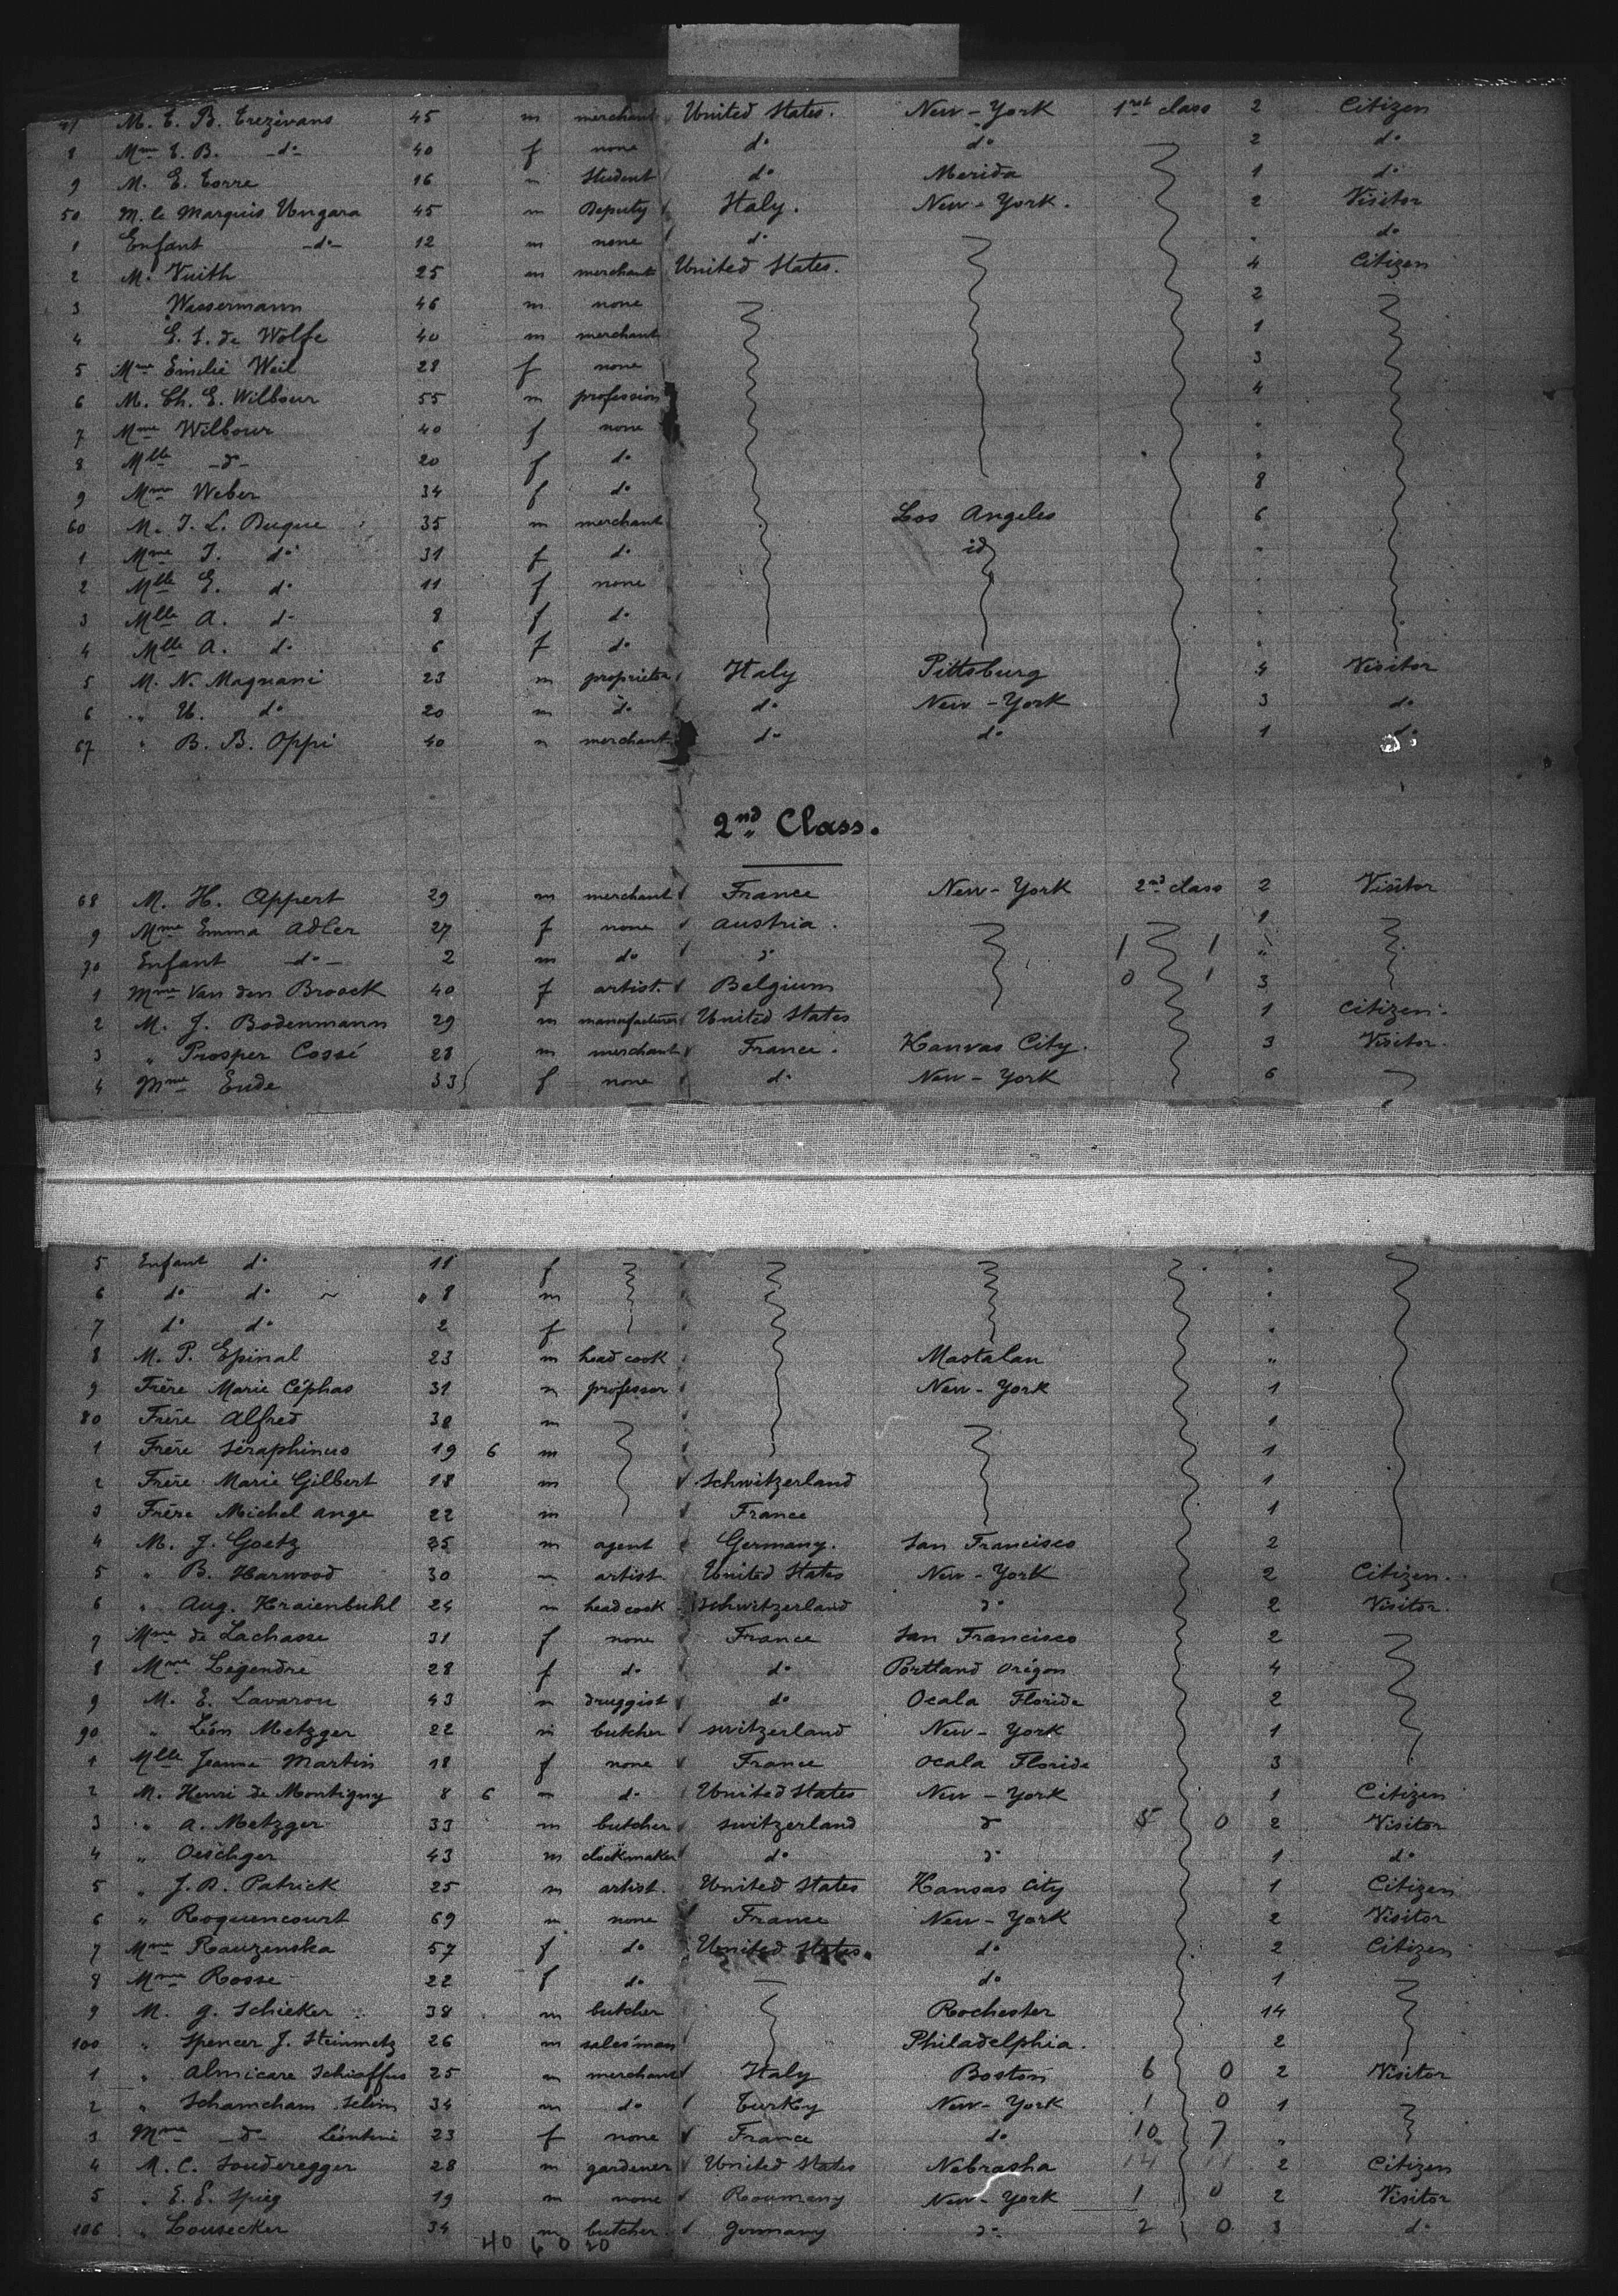 M. E. B. Erezivans 45 m merchant United States. New-York 1rst class 2 Citizen
8 Mme E. B. -do- 40 f none do do 2 do
9 M. E. Torre 16 m Student do Merida 1 do
50 M. le Marquis Ungara 45 m Deputy Italy. New-York. 2 Visitor
1 Enfant -do- 12 m none do do
2 M. Vuith 25 m merchant United States. 4 Citizen
3 Wassermann 46 m none 2
4 E. S. de Wolfe 40 m merchant 1
5 Mme Emilie Weil 28 f none 3
6 M. Ch. E. Wilbour 55 m profession 4
7 Mme Wilbour 40 f none
8 Mlle -do- 20 f do
9 Mme Weber 34 f do 8
60 M. J. L. Duque 35 m merchant Los Angeles 6
1 Mme J. do 31 f do id
2 Mlle E. do 11 f none
3 Mlle A. do 8 f do
4 Mlle A. do 6 f do
5 M. N. Magnani 23 m proprietor Italy Pittsburg 4 Visitor
6 " U. do 20 m do do New-York 3 do
67 " B. B. Oppi 40 m merchant do do 1 do
2nd Class.
68 M. H. Appert 29 m merchant France New-York 2nd class 2 Visitor
9 Mme Emma Adler 27 f none Austria. 1
70 Enfant -do- 2 m do do 1 1 "
1 Mme Van den Broeck 40 f artist. Belgium 0 1 3
2 M. J. Bodenmann 29 m manufacturer United States 1 Citizen.
3 " Prosper Cossé 28 m merchant France. Kanvas City. 3 Visitor.
4 Mme Eude 33 f none do New-York 6
5 Enfant do 11 f
6 do do 8 m
7 do do 2 f
8 M. P. Epinal 23 m head cook Mastalan "
9 Frère Marie Céphas 31 m professor New-York 1
80 Frère Alfred 38 m 1
1 Frère Séraphinus 19 6 m 1
2 Frère Marie Gilbert 18 m Schwitzerland 1
3 Frère Michel ange 22 m France 1
4 M. J. Goetz 35 m agent Germany. San Francisco 2
5 " B. Harwood 30 m artist. United States New-York 2 Citizen.
6 " Aug. Kraienbuhl 24 m head cook Schwitzerland do 2 Visitor.
7 Mme de Lachasse 31 f none France San Francisco 2
8 Mme Legendre 28 f do do Portland Orégon 4
9 M. E. Lavarou 43 m druggist do Ocala Floride 2
90 " Léon Metzger 22 m butcher switzerland New-York 1
1 Mlle Jeanne Martin 18 f none France Ocala Floride 3
2 M. Henri de Montigny 8 6 m do United States New-York 1 Citizen
3 " A. Metzger 33 m butcher switzerland do 5 0 2 Visitor
4 " Oeschger 43 m clockmaker do do 1 do
5 " J. D. Patrick 25 m artist. United States Kansas City 1 Citizen
6 " Roquencourt 69 m none France New-York 2 Visitor
7 Mme Rauzenska 57 f do United States do 2 Citizen
8 Mme Rosse 22 f do do 1
9 M. G. Schicker 38 m butcher Rochester 14
100 " Spencer J. Steinmetz 26 m salesman Philadelphia. 2
1 " Almicare Schiaffus 25 m merchant Italy Boston 6 0 2 Visitor
2 " Schamcham Selim 34 m do Turkey New-York 1 0 1
3 Mme -do- Léontine 23 f none France do 10 7 "
4 M. C. Souderegger 28 m gardener United States Nebrasha 14 11 2 Citizen
5 " E. E. Spieg 19 m none Roumany New-York 1 0 2 Visitor
106 " Lousecker 34 m butcher Germany do 2 0 3 do
40 6 0 20